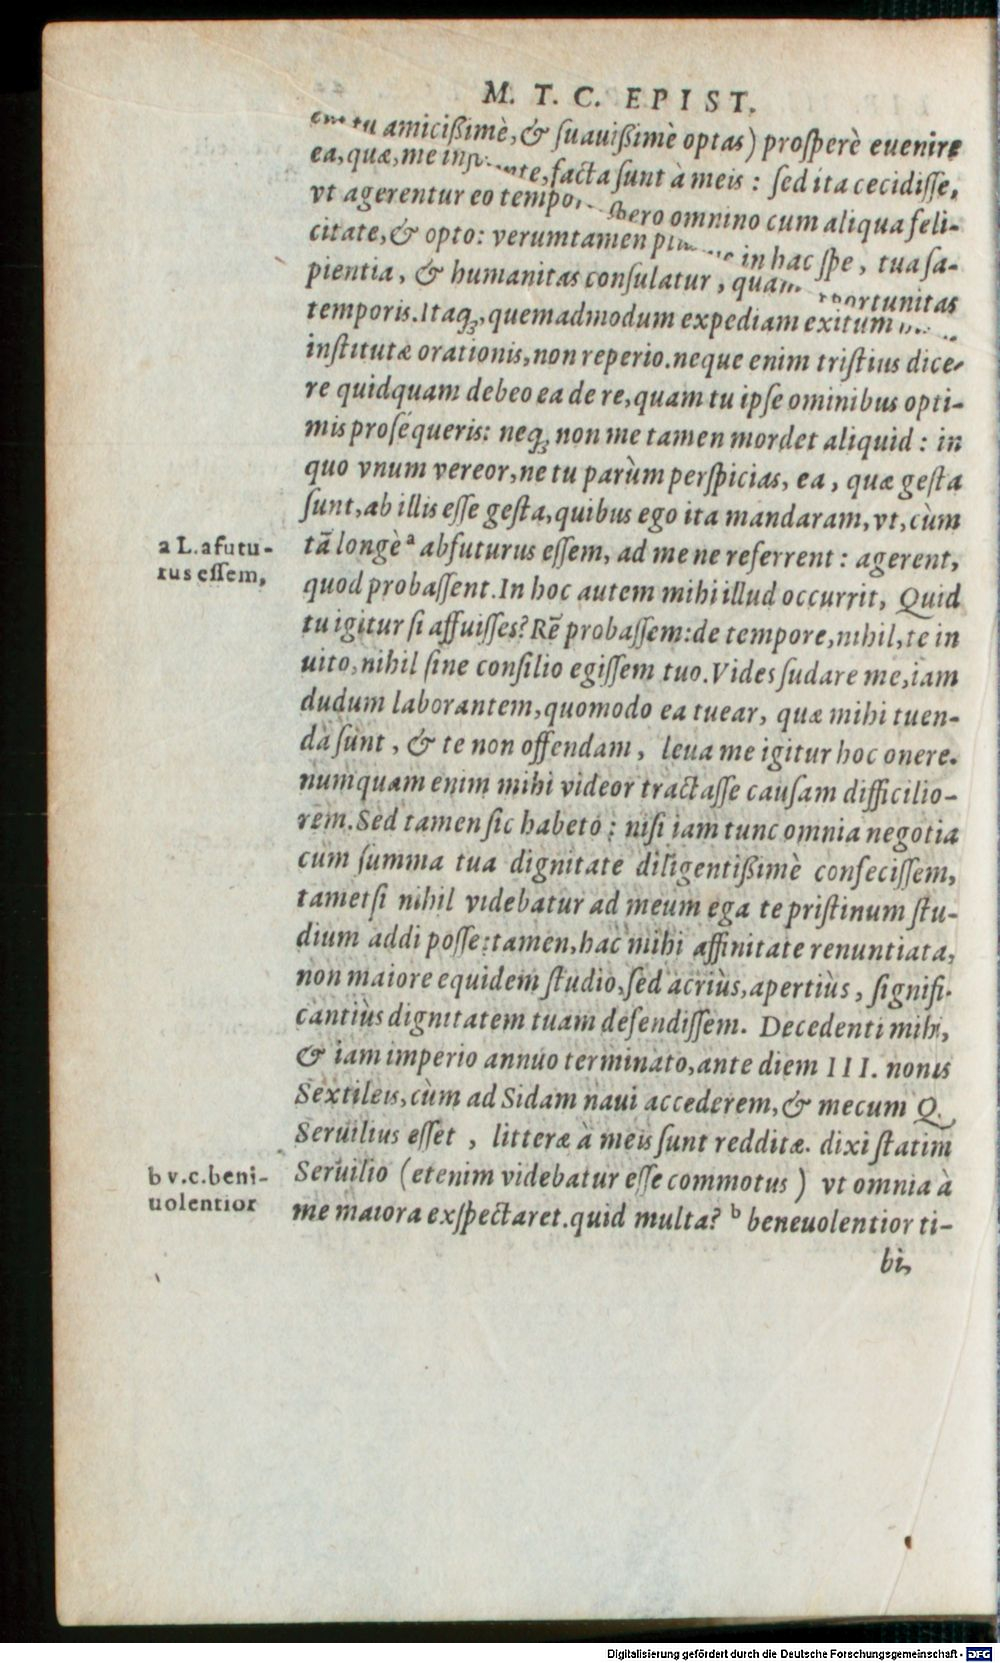 M. T. C. EPIST.
tu amicißimè, & ſuauißimè optas) proſperè euenire
ea, quæ, me inſ..ante, facta ſunt à meis : ſed ita cecidiſſe,
vt agerentur eo tempor. ſpero omnino cum aliqua feli-
citate, & opto: verumtamen in hac ſpe, tua ſa-
pientia, & humanitas conſulatur, quam portunitas
temporis. Itaq;, quemadmodum expediam exitum
inſtitutæ orationis, non reperio. neque enim triſtius dice-
re quidquam debeo ea de re, quam tu ipſe ominibus opti-
mis proſequeris: neq; non me tamen mordet aliquid : in
quo vnum vereor, ne tu parùm perſpicias, ea, quæ geſta
ſunt, ab illis eſſe geſta, quibus ego ita mandaram, vt, cùm
a L. afutu-
rus eſſem,
tã longè a abfuturus eſſem, ad me ne referrent : agerent,
quod probaſſent. In hoc autem mihi illud occurrit, Quid
tu igitur ſi affuiſſes? Rẽ probaſſem: de tempore, nihil, te in
uito, nihil ſine conſilio egiſſem tuo. Vides ſudare me, iam
dudum laborantem, quomodo ea tuear, quæ mihi tuen-
da ſunt, & te non offendam, leua me igitur hoc onere.
numquam enim mihi videor tractaſſe cauſam difficilio-
rem. Sed tamen ſic habeto : niſi iam tunc omnia negotia
cum ſumma tua dignitate diligentißimè confeciſſem,
tametſi nihil videbatur ad meum ega te priſtinum ſtu-
dium addi poſſe: tamen, hac mihi affinitate renuntiata,
non maiore equidem ſtudio, ſed acriùs, apertiùs, ſignifi-
cantiùs dignitatem tuam defendiſſem. Decedenti mihi,
& iam imperio annuo terminato, ante diem III. nonas
Sextileis, cùm ad Sidam naui accederem, & mecum Q.
Seruilius eſſet, litteræ à meis ſunt redditæ. dixi ſtatim
b v.c. beni-
uolentior
Seruilio (etenim videbatur eſſe commotus) vt omnia à
me maiora exſpectaret. quid multa? b beneuolentior ti-
bi,
Digitalisierung gefördert durch die Deutsche Forschungsgemeinschaft - DFG